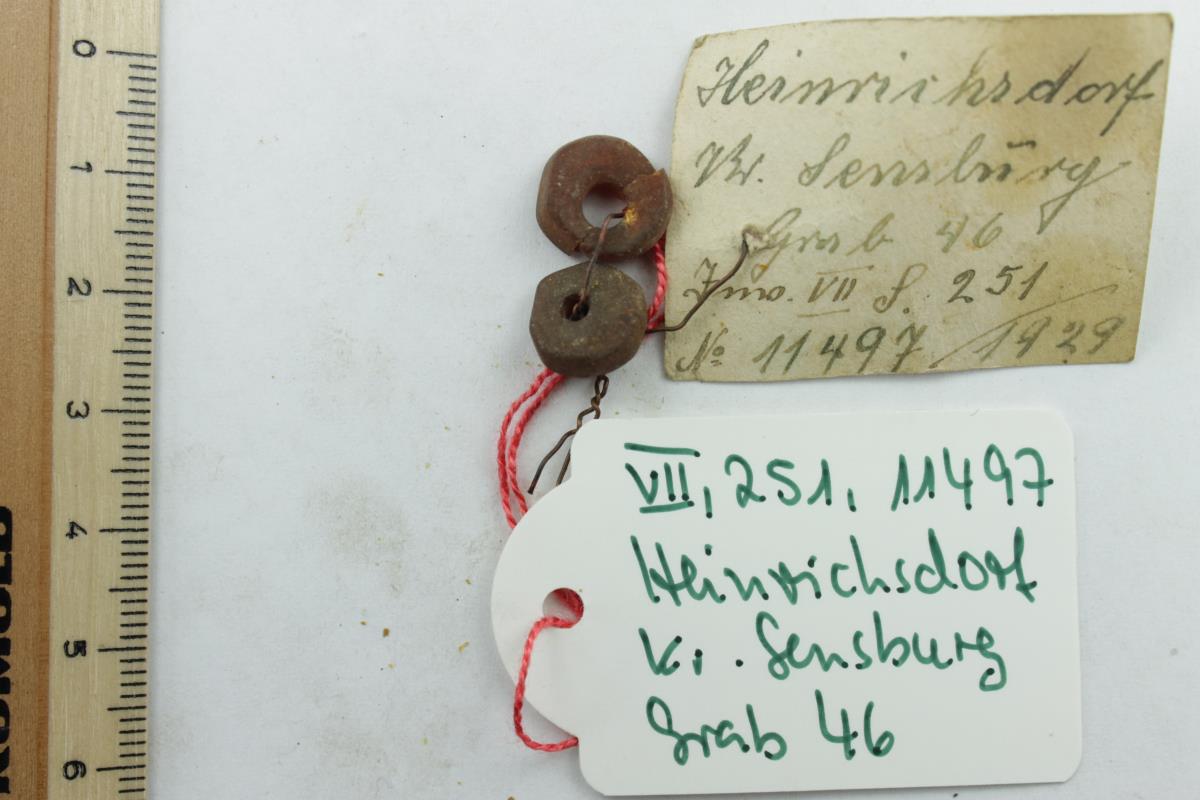 Heinrichsdorf
Kr. Sensbŭrg
Grab 46
Inv. VII S. 251
№ 11497 / 1929
VII, 251, 11497
Heinrichsdorf
Kr. Sensburg
Grab 46
0
1
2
3
4
5
6